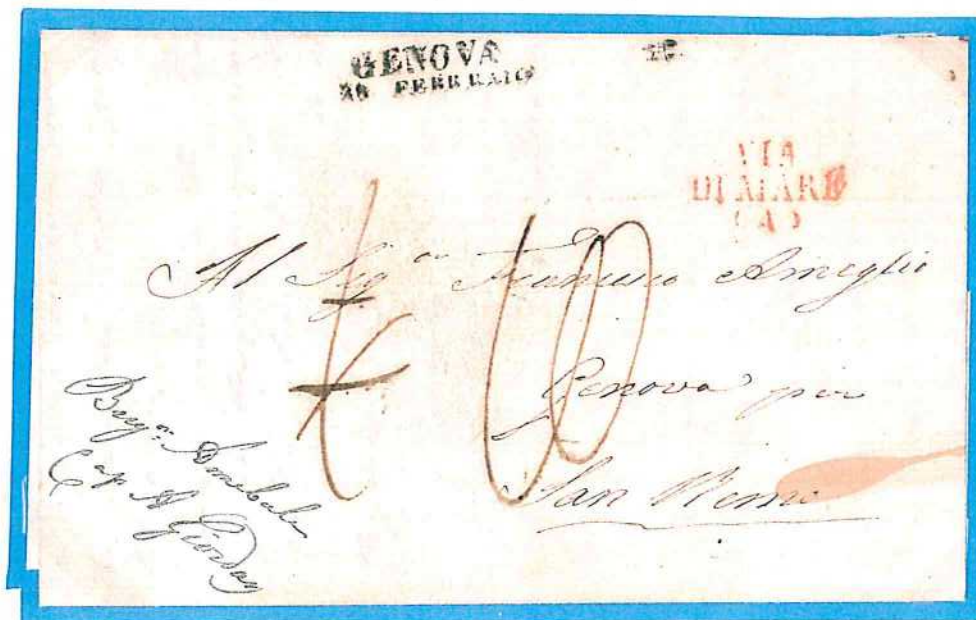 GENOVA
FEBBRAIO
VIA
DI MARE
(A)
Al Sig.on Francesco Ameglio
Genova per
San Remo
Brig.no
Cap A Giordan
10